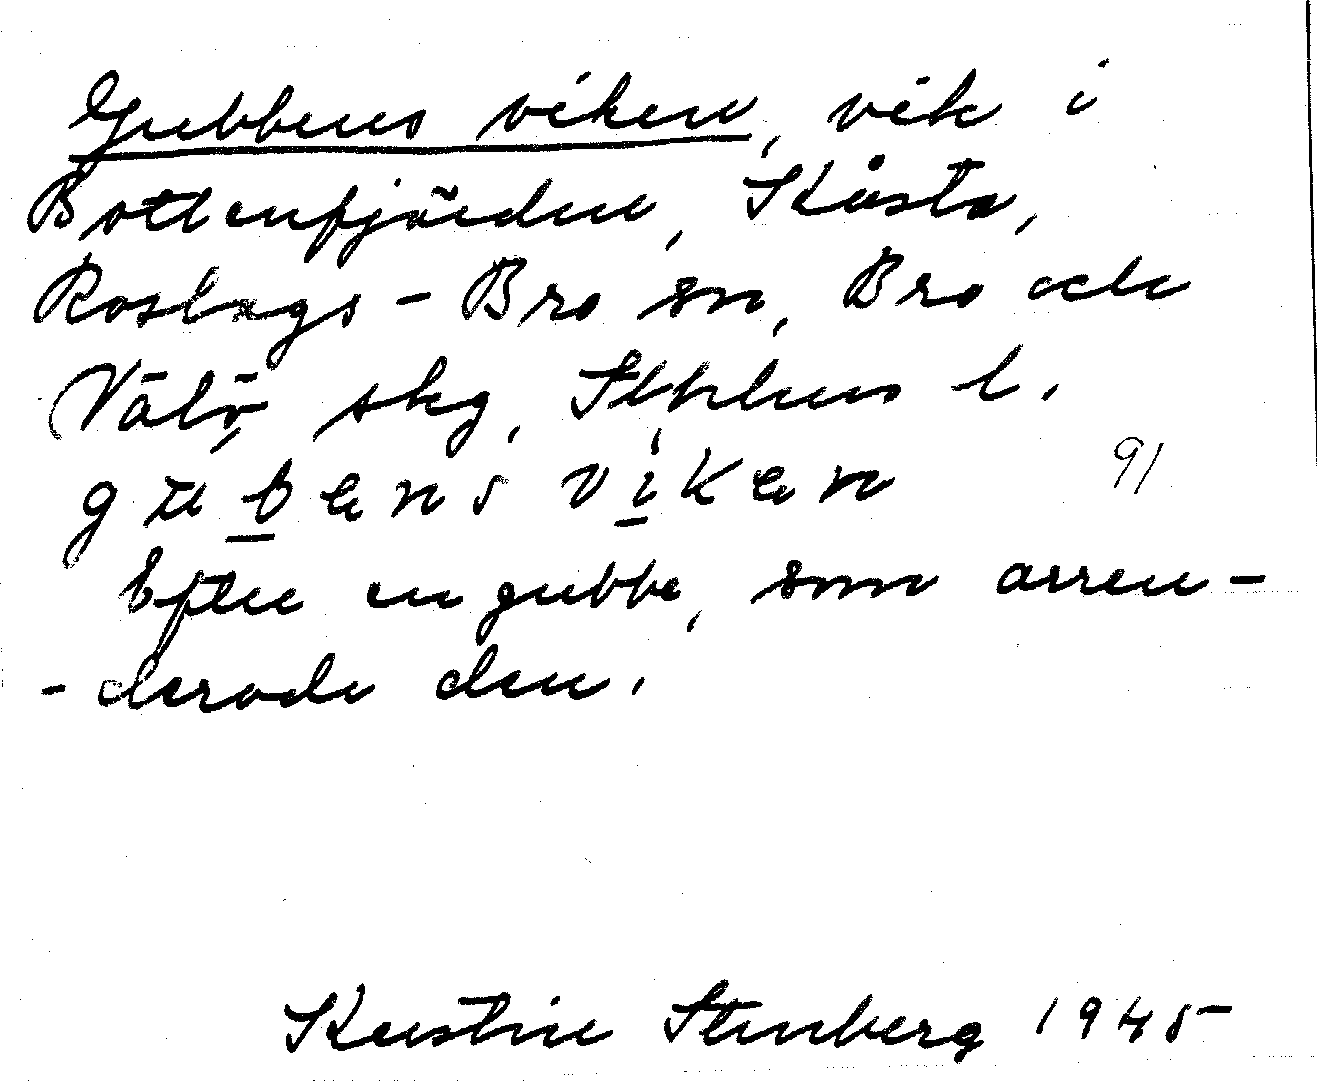 Gubbens viken, vik i
Bottenfjärden, Kåsta,
Roslags-Bro sn, Bro och
Vätö skg, Sthlms l.
gubens viken 91
Efter en gubbe, som arren-
-derade den.
Kerstin Stenberg 1945